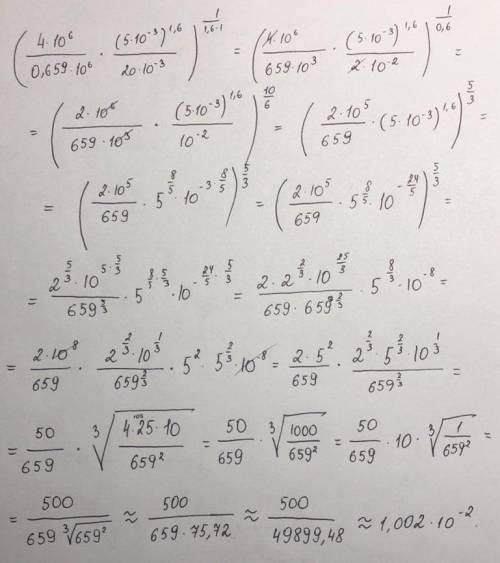 (4·10⁶/0,659·10⁶ · (5·10⁻³)^1,6/20·10⁻³)^(1/(1,6-1)) = (4·10⁶/659·10³ · (5·10⁻³)^1,6/2·10⁻²)^(1/0,6) =
= (2·10⁶/659·10³ · (5·10⁻³)^1,6/10⁻²)^(10/6) = (2·10⁵/659 · (5·10⁻³)^1,6)^(5/3) =
= (2·10⁵/659 · 5^(8/5) · 10^(-3·8/5))^(5/3) = (2·10⁵/659 · 5^(8/5) · 10^(-24/5))^(5/3) =
= 2^(5/3)·10^(5·5/3)/659^(5/3) · 5^(8/5·5/3) · 10^(-24/5·5/3) = 2·2^(2/3)·10^(25/3)/659·659^(2/3) · 5^(8/3) · 10⁻⁸ =
= 2·10⁸/659 · 2^(2/3)·10^(1/3)/659^(2/3) · 5² · 5^(2/3) · 10⁻⁸ = 2·5²/659 · 2^(2/3)·5^(2/3)·10^(1/3)/659^(2/3) =
= 50/659 · ³√(4·25·10/659²) = 50/659 · ³√(1000/659²) = 50/659 · 10 · ³√(1/659²) =
= 500/659 ³√659² ≈ 500/659·75,72 ≈ 500/49899,48 ≈ 1,002·10⁻².